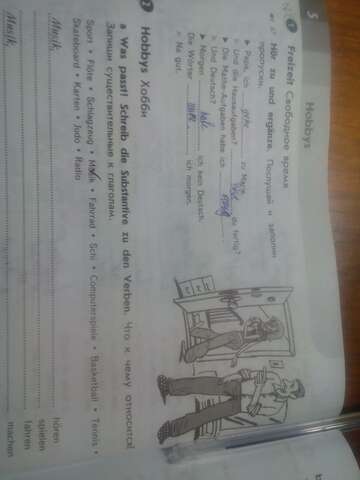 5
Hobbys
1 Freizeit Свободное время
67 Hör zu und ergänze. Послушай и заполни
пропуски.
Papa, ich gehe zu Marie.
Und die Hausaufgaben? du fertig?
Die Mathe-Aufgaben habe ich
Und Deutsch?
Morgen habe ich kein Deutsch.
Die Wörter ich morgen.
Na gut.
2 Hobbys Хобби
a Was passt? Schreib die Substantive zu den Verben. Что к чему относится?
Запиши существительные к глаголам.
Sport • Flöte • Schlagzeug • Musik • Fahrrad • Schi • Computerspiele • Basketball • Tennis •
Skateboard • Karten • Judo • Radio
Musik, hören
spielen
fahren
Musik, machen